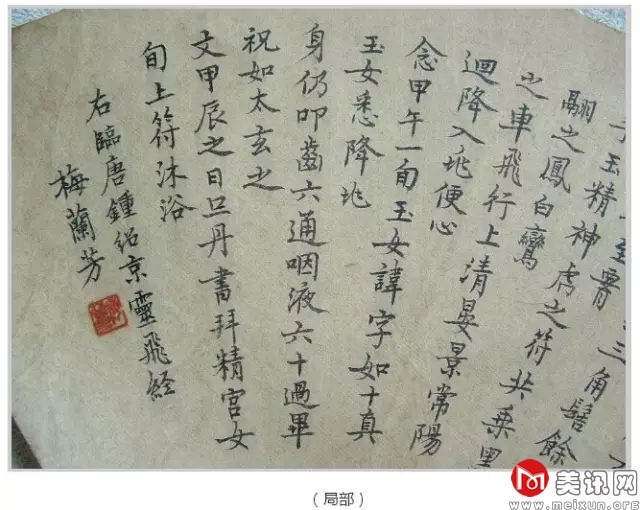 三角髻餘
玉精神虎之符共乘黑
翮之鳳白鸞
之車飛行上清晏景常陽
迴降入兆便心
念甲午一旬玉女諱字如十真
玉女悉降兆
身仍叩齒六通咽液六十過畢
祝如太玄之
文甲辰之日旦丹書拜精宮女
旬上符沐浴
右臨唐鍾紹京靈飛経
梅蘭芳
（局部）
美讯网
www.meixun.org